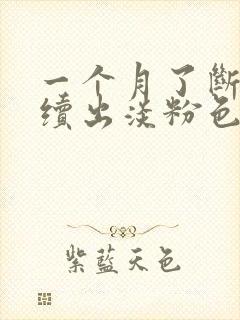 一个月了斷
續出淡粉色
紫藍天色